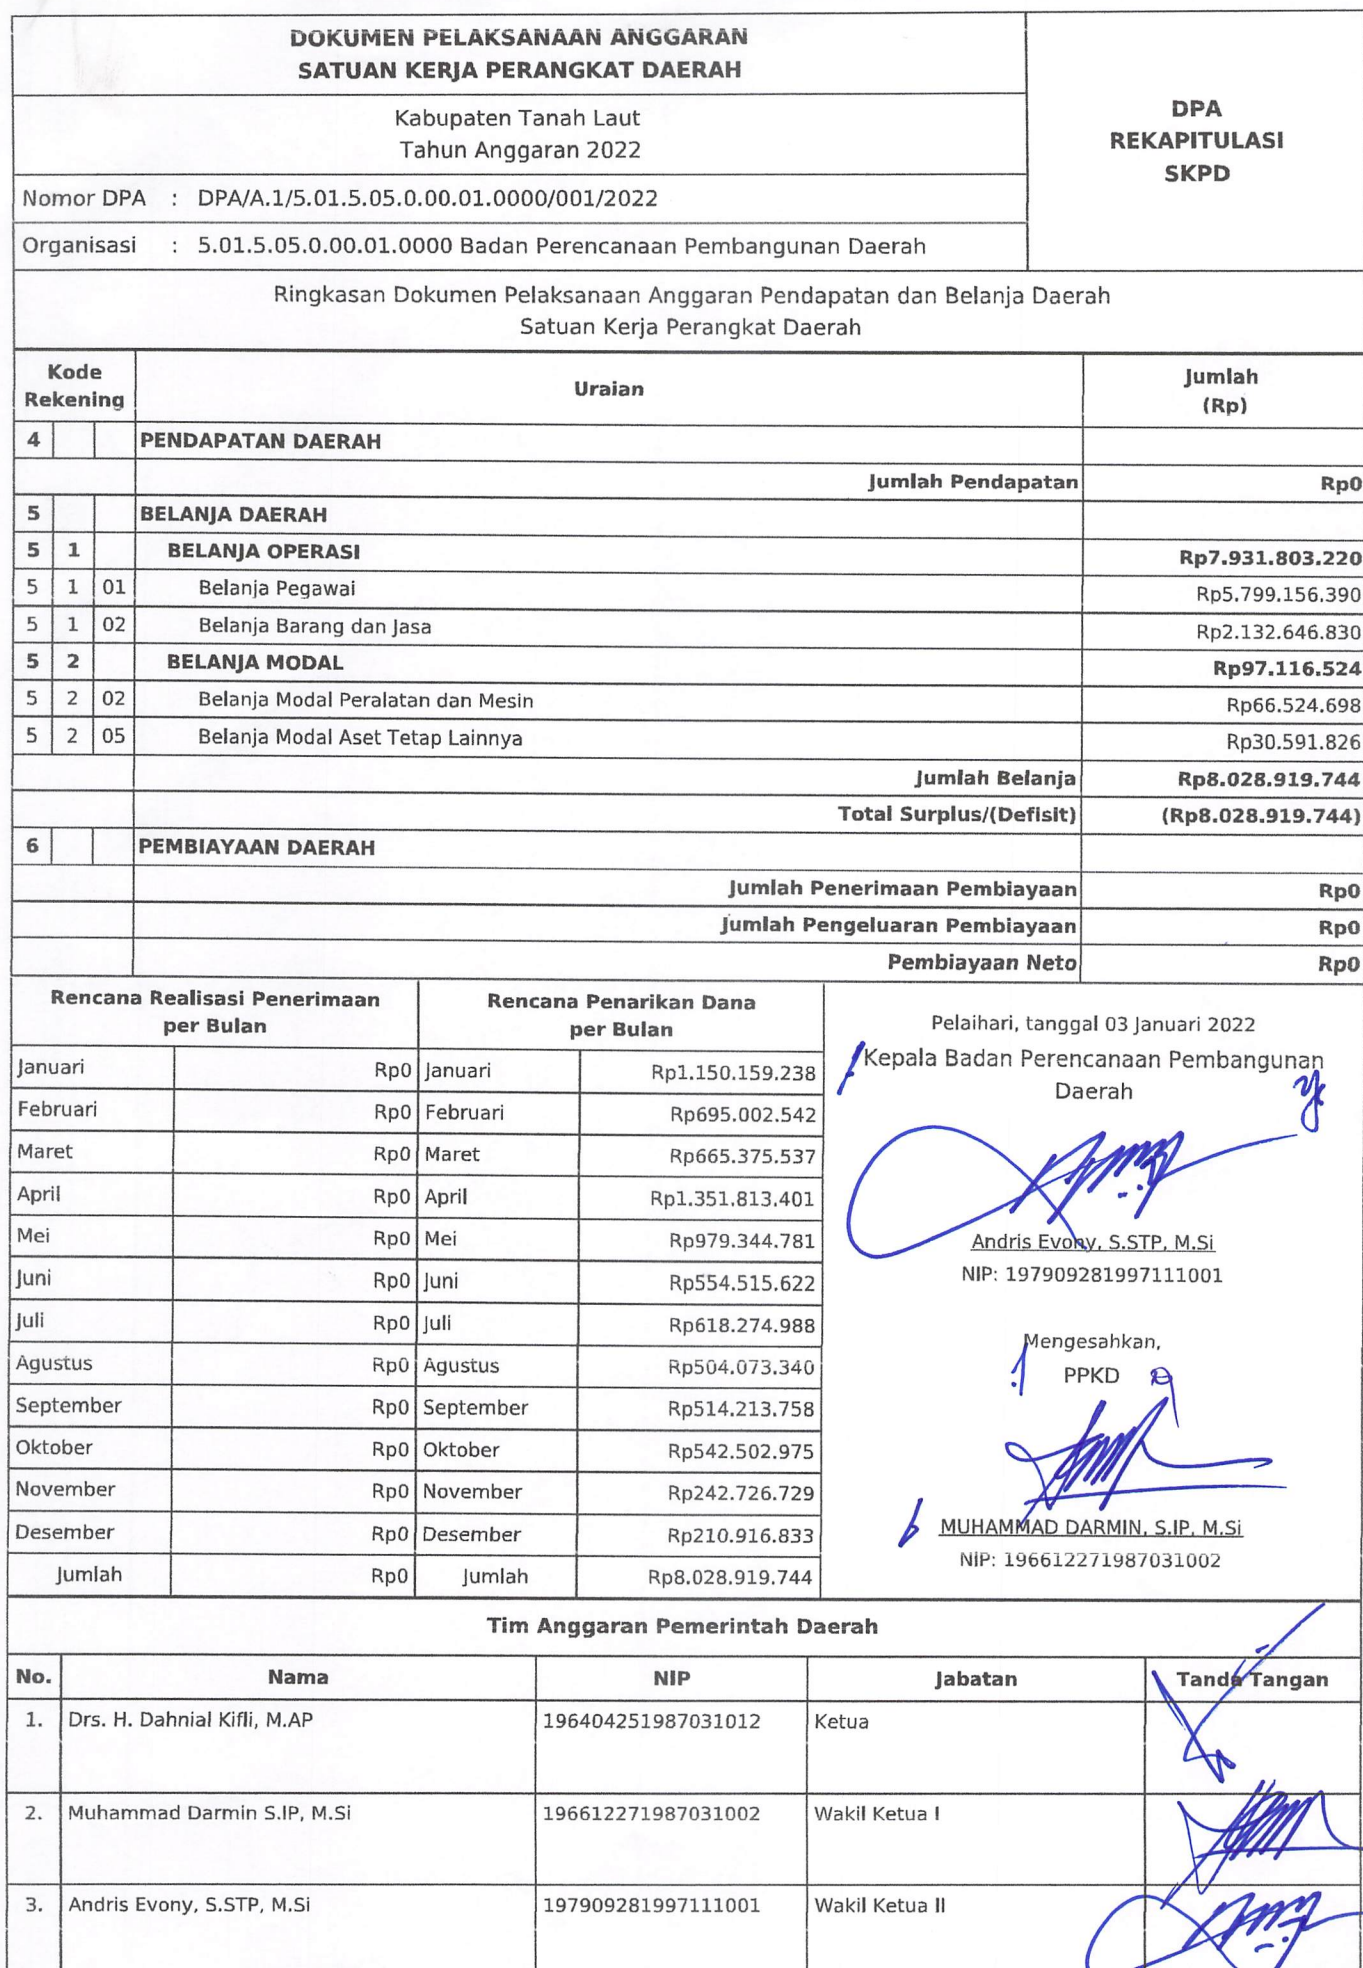 DOKUMEN PELAKSANAAN ANGGARAN
SATUAN KERJA PERANGKAT DAERAH
Kabupaten Tanah Laut
Tahun Anggaran 2022
DPA
REKAPITULASI
SKPD
Nomor DPA : DPA/A.1/5.01.5.05.0.00.01.0000/001/2022
Organisasi : 5.01.5.05.0.00.01.0000 Badan Perencanaan Pembangunan Daerah
Ringkasan Dokumen Pelaksanaan Anggaran Pendapatan dan Belanja Daerah
Satuan Kerja Perangkat Daerah
Kode Rekening Uraian Jumlah (Rp)
4 PENDAPATAN DAERAH
Jumlah Pendapatan Rp0
5 BELANJA DAERAH
5 1 BELANJA OPERASI Rp7.931.803.220
5 1 01 Belanja Pegawai Rp5.799.156.390
5 1 02 Belanja Barang dan Jasa Rp2.132.646.830
5 2 BELANJA MODAL Rp97.116.524
5 2 02 Belanja Modal Peralatan dan Mesin Rp66.524.698
5 2 05 Belanja Modal Aset Tetap Lainnya Rp30.591.826
Jumlah Belanja Rp8.028.919.744
Total Surplus/(Defisit) (Rp8.028.919.744)
6 PEMBIAYAAN DAERAH
Jumlah Penerimaan Pembiayaan Rp0
Jumlah Pengeluaran Pembiayaan Rp0
Pembiayaan Neto Rp0
Rencana Realisasi Penerimaan per Bulan Rencana Penarikan Dana per Bulan
Januari Rp0 Januari Rp1.150.159.238
Februari Rp0 Februari Rp695.002.542
Maret Rp0 Maret Rp665.375.537
April Rp0 April Rp1.351.813.401
Mei Rp0 Mei Rp979.344.781
Juni Rp0 Juni Rp554.515.622
Juli Rp0 Juli Rp618.274.988
Agustus Rp0 Agustus Rp504.073.340
September Rp0 September Rp514.213.758
Oktober Rp0 Oktober Rp542.502.975
November Rp0 November Rp242.726.729
Desember Rp0 Desember Rp210.916.833
Jumlah Rp0 Jumlah Rp8.028.919.744
Pelaihari, tanggal 03 Januari 2022
Kepala Badan Perencanaan Pembangunan
Daerah
Andris Evony, S.STP, M.Si
NIP: 197909281997111001
Mengesahkan,
PPKD
MUHAMMAD DARMIN, S.IP, M.Si
NIP: 196612271987031002
Tim Anggaran Pemerintah Daerah
No. Nama NIP Jabatan Tanda Tangan
1. Drs. H. Dahnial Kifli, M.AP 196404251987031012 Ketua
2. Muhammad Darmin S.IP, M.Si 196612271987031002 Wakil Ketua I
3. Andris Evony, S.STP, M.Si 197909281997111001 Wakil Ketua II